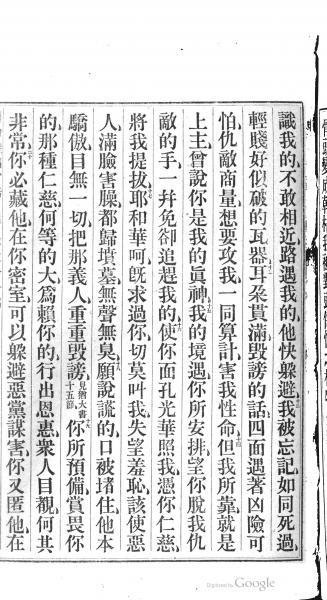 識我的、不敢相近路遇我的他快躲避、我被忘記、如同死過、
輕賤好似破的瓦器、耳朶貫滿毀謗的話、四面遇著凶險可
怕、仇敵商量想要攻我、一同算計害我性命、但我所靠就是
上主、曾說你是我的眞神、我的境遇你所安排、望你脫我仇
敵的手、一幷免卻追趕我的、使你面孔光華照我、憑你仁慈、
將我提拔、耶和華呵、旣求過你、切莫叫我失望羞恥、該使惡
人、滿臉害臊、都歸墳墓、無聲無臭、願說謊的口被堵住、他本
驕傲目無一切、把那義人重重毀謗、見猶大書十五節你所預備賞畏你
的、那種仁慈何等的大、爲賴你的行出恩惠、衆人目覩何其
非常、你必藏他在你密室、可以躲避惡黨謀害、你又匿他在
Digitized by Google